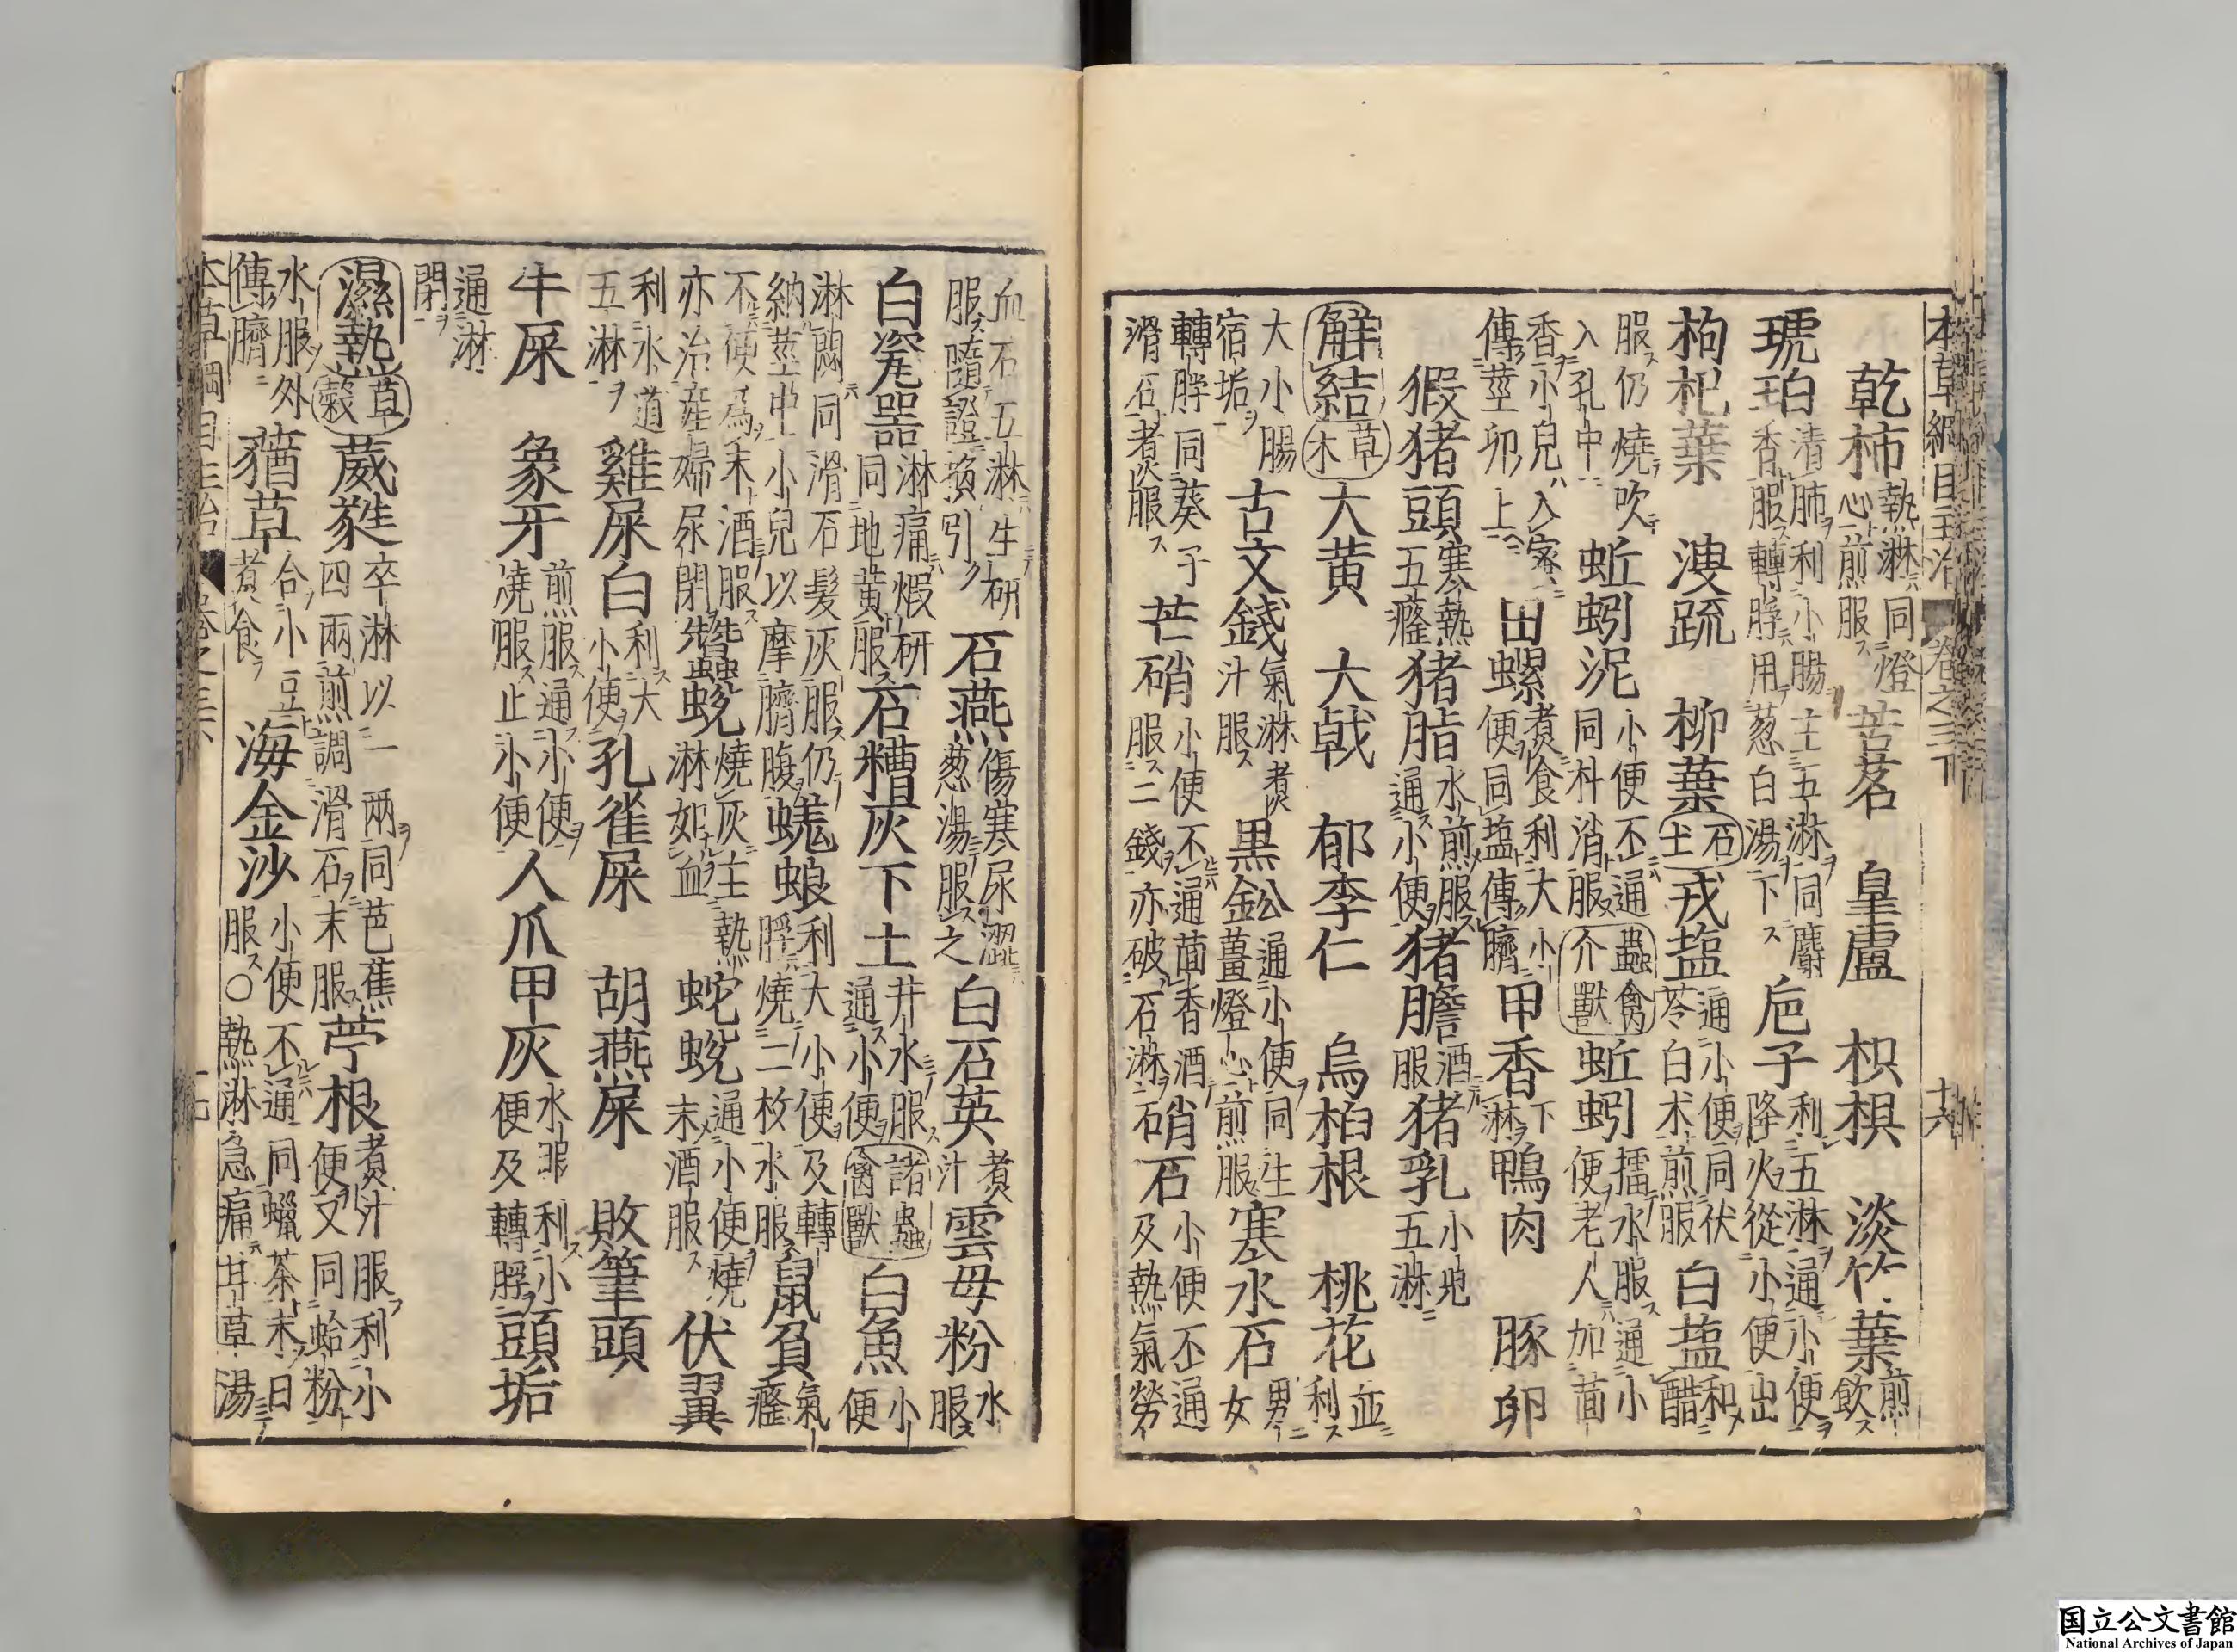 本草綱目主治 卷之三下 十六
乾柹 熱淋同燈心煎服 苦茗 皇盧 枳椇 淡竹葉 煎飲
琥珀 清肺利小腸主五淋同麝香服轉脬用葱白湯下 巵子 利五淋通小便降火從小便出
枸杞葉 溲疏 柳葉 石土 戎塩 通小便同伏苓白术煎服 白塩 和醋
服仍燒吹入孔中 蚯蚓泥 小便不通同朴消服 蟲禽介獸 蚯蚓 擂水服通小便老人加茴
香小兒入蜜傅莖卵上 田螺 煮食利大小便同塩傅臍 甲香 下淋 鴨肉 豚卵
猳猪頭 寒熱五癃 猪脂 水煎服通小便 猪膽 酒服 猪乳 小兒五淋
解結 草木 大黄 大戟 郁李仁 烏桕根 桃花 並利
大小腸宿垢 古文錢 氣淋煮汁服 黒鈆 通小便同生薑燈心煎服 寒水石 男女
轉脬同葵子滑石煮服 芒硝 小便不通茴香酒服二錢亦破石淋 硝石 小便不通及熱氣勞
血石五淋生研服隨證換引 石燕 傷寒尿澀葱湯服之 白石英 煮汁 雲母粉 水服
白瓷噐 淋痛煆研同地黄服 石糟灰下土 井水服通小便 諸蟲禽獸 白魚 小便
淋閟同滑石髮灰服仍納莖中小兒以摩臍腹 蜣蜋 利大小便及轉脬燒二枚水服 鼠負 氣癃
不便為末酒服亦治産婦尿閉 蠶蛻 燒灰主熱淋如血 蛇蛻 通小便燒末酒服 伏翼
利水道五淋 雞屎白 利大小便 孔雀屎 胡燕屎 敗筆頭
牛屎 象牙 煎服通小便燒服止小便 人爪甲灰 水服利小便及轉脬 頭垢
通淋閉
濕熱 草榖 葳蕤 卒淋以一兩同芭蕉四兩煎調滑石末服 苧根 煮汁服利小便又同蛤粉
水服外傅臍 蕕草 合小豆煮食 海金沙 小便不通同蠟茶末日服○熱淋急痛甘草湯
本草綱目主治 卷之三下 十七
国立公文書館
National Archives of Japan